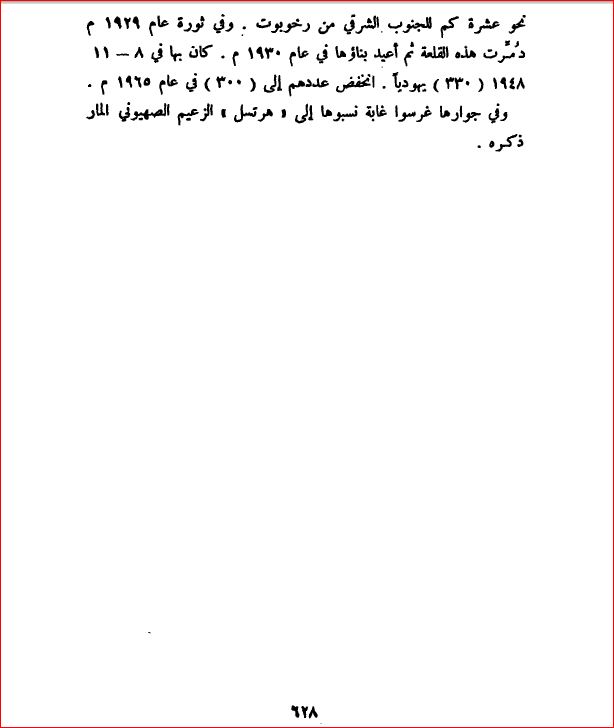 نحو عشرة كم للجنوب الشرقي من رخوبوت . وفي ثورة عام ١٩٢٩ م
دُمِّرت هذه القلعة ثم أعيد بناؤها في عام ١٩٣٠ م . كان بها في ٨ — ١١
١٩٤٨ ( ٣٣٠ ) يهودياً . انخفض عددهم إلى ( ٣٠٠ ) في عام ١٩٦٥ م .
وفي جوارها غرسوا غابة نسبوها إلى « هرتسل » الزعيم الصهيوني المار
ذكره .
٦٢٨